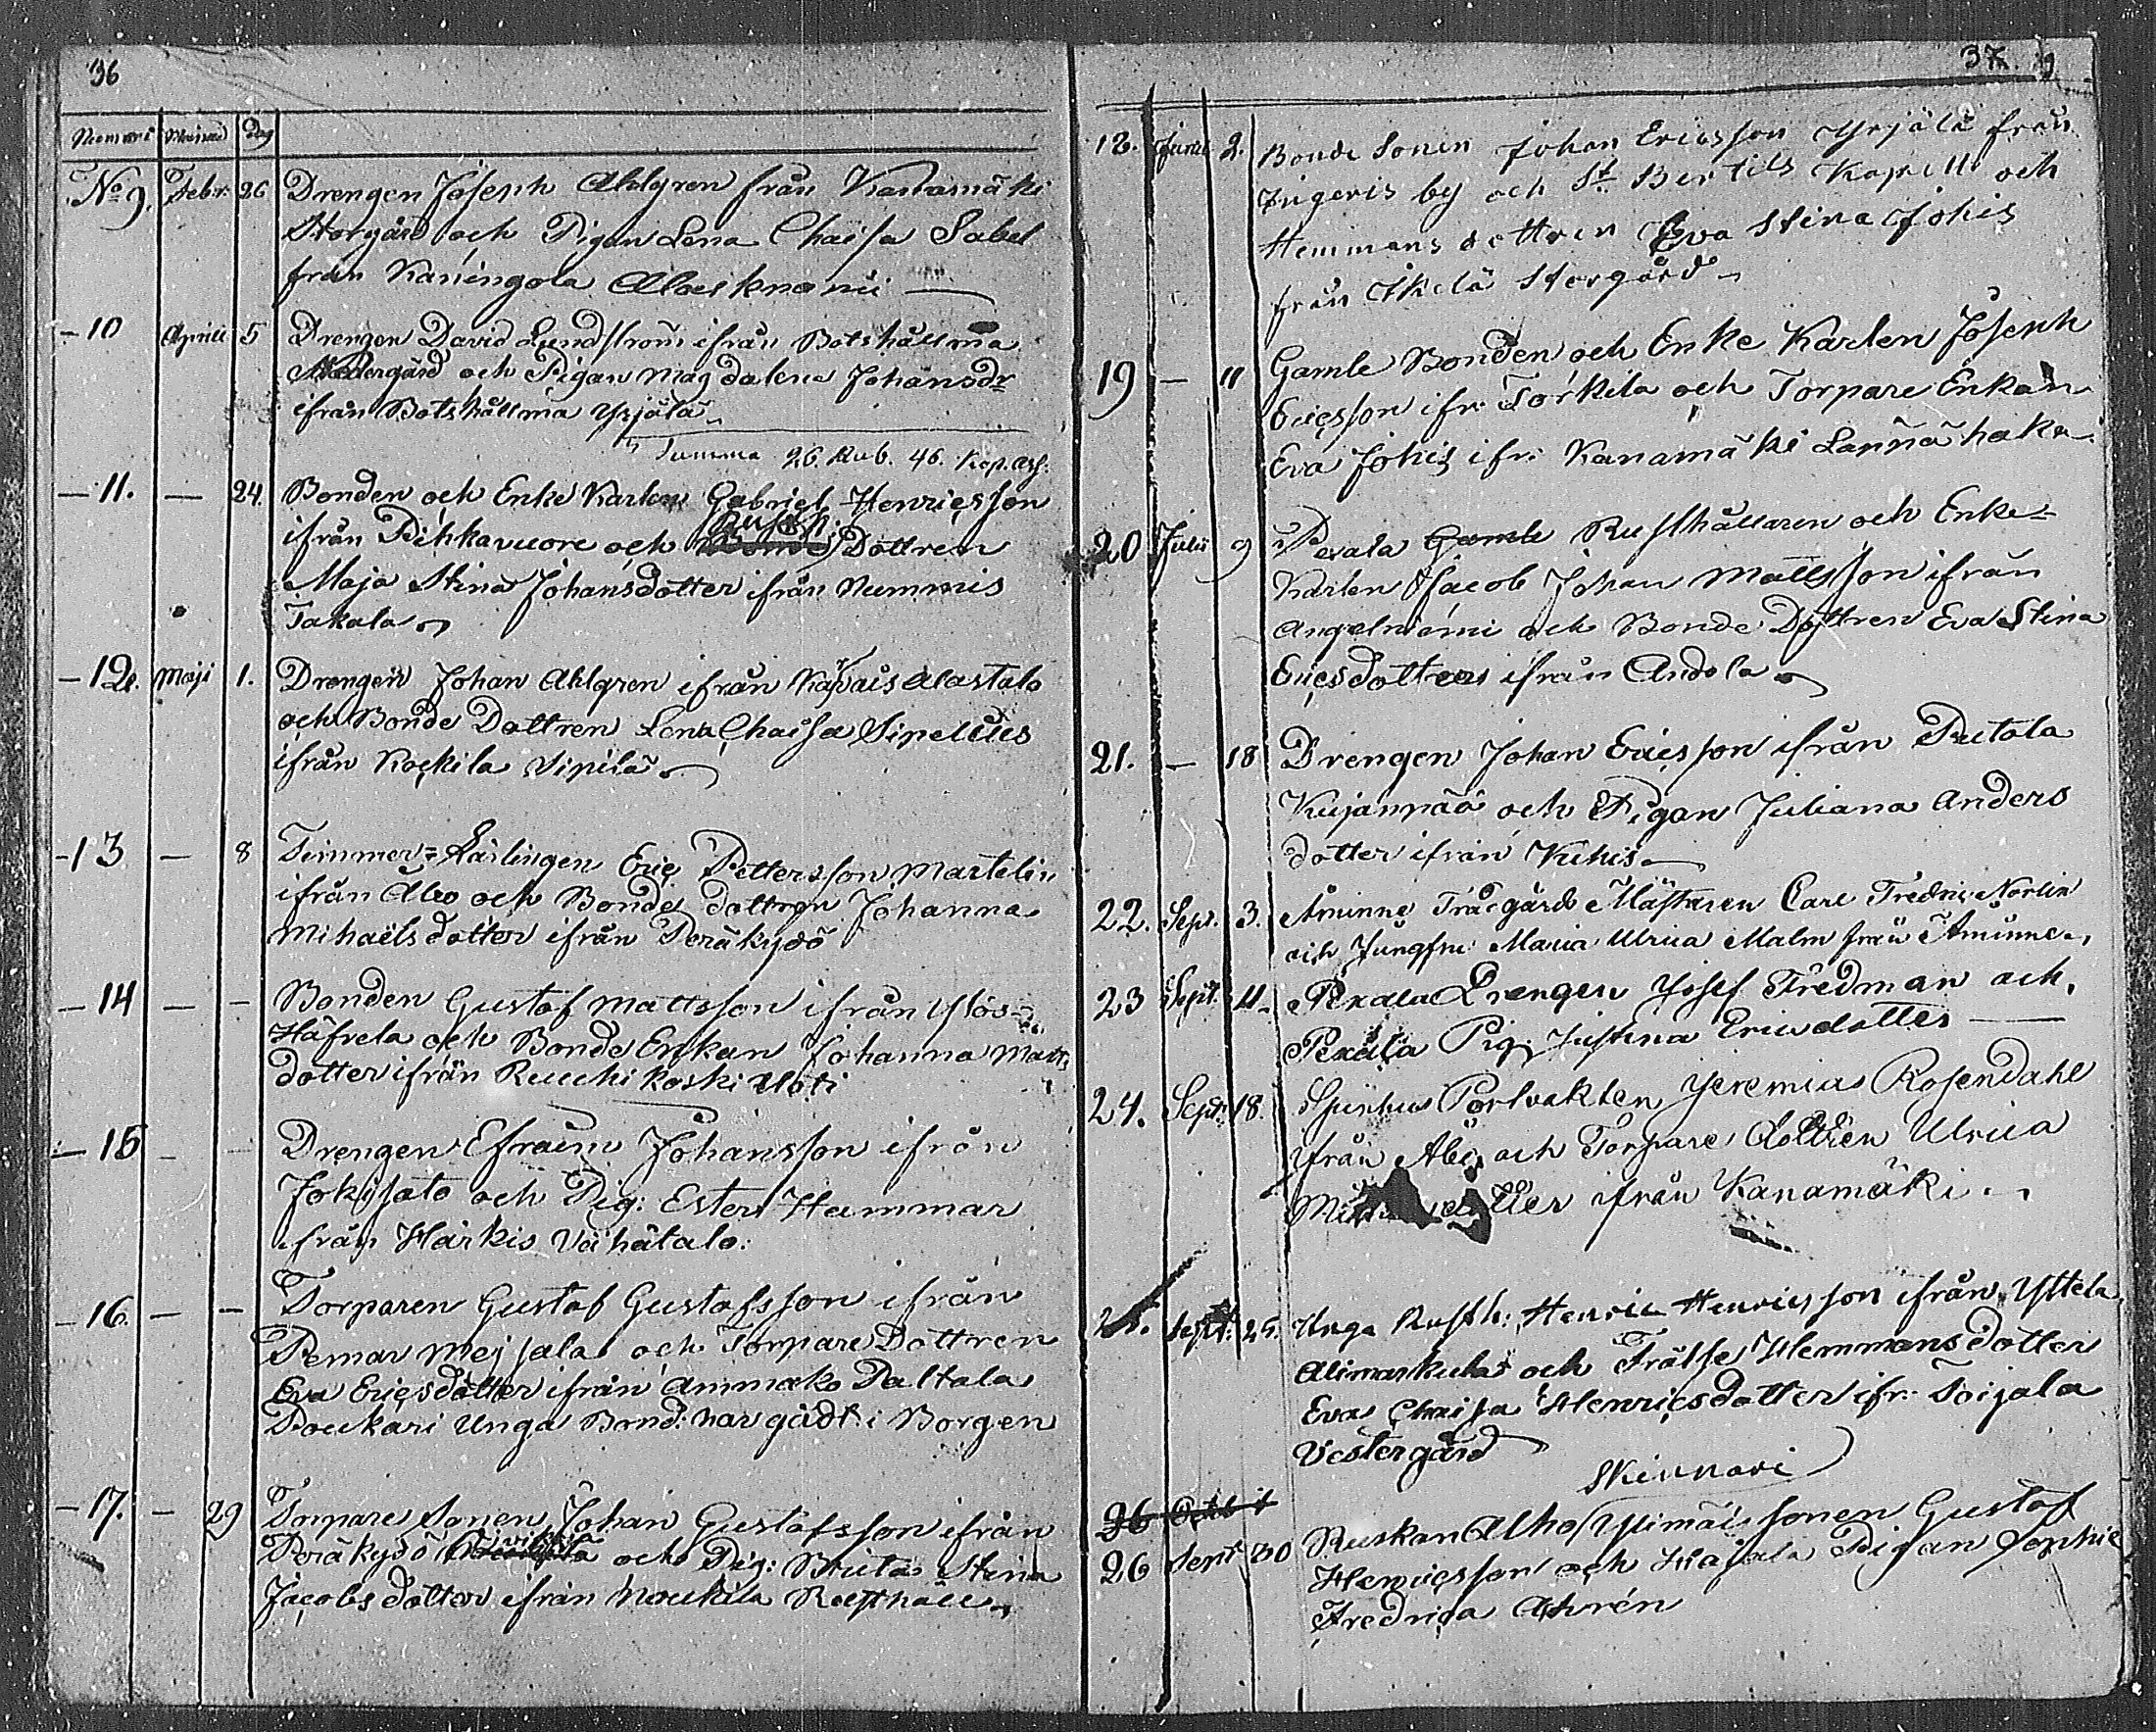 36
Nummer Månad Dag
No 9. Febr: 26 Drengen Joseph Ahlgren från Kanamäki
Storgård och Pigan Lena Chaisa Sabel
från Kaningola
— 10 Aprill 5 Drengen David Lundström ifrån Botshållma
Nedergård och Pigan Magdalena Johansdr
ifrån Botshållma Yrjälä
Summa 26. Rub. 46. Kop. Ass:
— 11. — 24. Bonden och Enke Karlen Gabriel Henricsson
ifrån Pihkavuore och Rusth: Dottren
Maja Stina Johansdotter ifrån Nummis
Takala
— 12. Maji 1. Drengen Johan Ahlgren ifrån Alastalo
och Bonde Dottren Lena Chaisa Sipelius
ifrån Kockila Sipilä
— 13 — 8 Timmer=Kärlingen Eric Pettersson Martelin
ifrån Åbo och Bonde dottren Johanna
Mihaëls dotter ifrån Peräkydö
— 14 — — Bonden Gustaf Mattsson ifrån Ylös=
Häfvela och Bonde Enkan Johanna Matts
dotter ifrån Ruuhikoski Uoti
— 15 — — Drengen Efraim Johansson ifrån
Jokisato och Pig: Ester Hammar
från Härkis Vähätalo.
— 16. — — Torparen Gustaf Gustafsson ifrån
Pemar Mejjala och Torpare Dottren
Eva Ericsdotter ifrån Ammako Paltala
Poukari Unga Bond: har gådt i Borgen
— 17. — 29 Torpare Sonen Johan Gustafsson ifrån
Peräkydö och Pig: Brita Stina
Jacobs dotter ifrån Moukila Rusthåll
37.
18. Junii 2. Bonde Sonen Johan Ericsson Yrjälä från
Ingeris by och St Bertils Kapell och
Hemmans dottren Eva Stina Johis
från Ikelä Storgård
19 — 11 Gamle Bonden och Enke Karlen Joseph
Ericsson ifr: Torkila och Torpare Enkan
Eva Johis ifr: Kanamäki Lannähaka
20 Julii 9 Pexala Gamle Rusthållaren och Enke=
Karlen Jacob Johan Mattsson ifrån
Angelniemi och Bonde Dottren Eva Stina
Ericsdotter ifrån Andola
21. — 18 Drengen Johan Ericsson ifrån Putola
Kujanpää och Pigan Juliana Anders
dotter ifrån Kukis
22. Sept. 3. Åminne Trädgårds Mästaren Carl Fredric Norlin
och Jungfru Maria Ulrica Malm från Åminne
23 Sept. 4. Pexala Drengen Josef Fredman och
Pexala Pig: Justina Ericsdotter
24. Sept: 18. Portvakten Jeremias Rosendahl
ifrån Åbo och Torpare dottren Ulrica
ifrån Kanamäki
25. Sept: 25. Unga Rusth: Henric Henricsson ifrån Yttela
Alimarkula och Frälse Hemmans dotter
Eva Chaisa Henricsdotter ifr: Toijala
Vestergård
Skinnari
26 Octob 1
26 Sept 30 Ruskan Alho Ylimäis sonen Gustaf
Henricsson och Hajala Pigan Sophie
Fredrica Ahrén